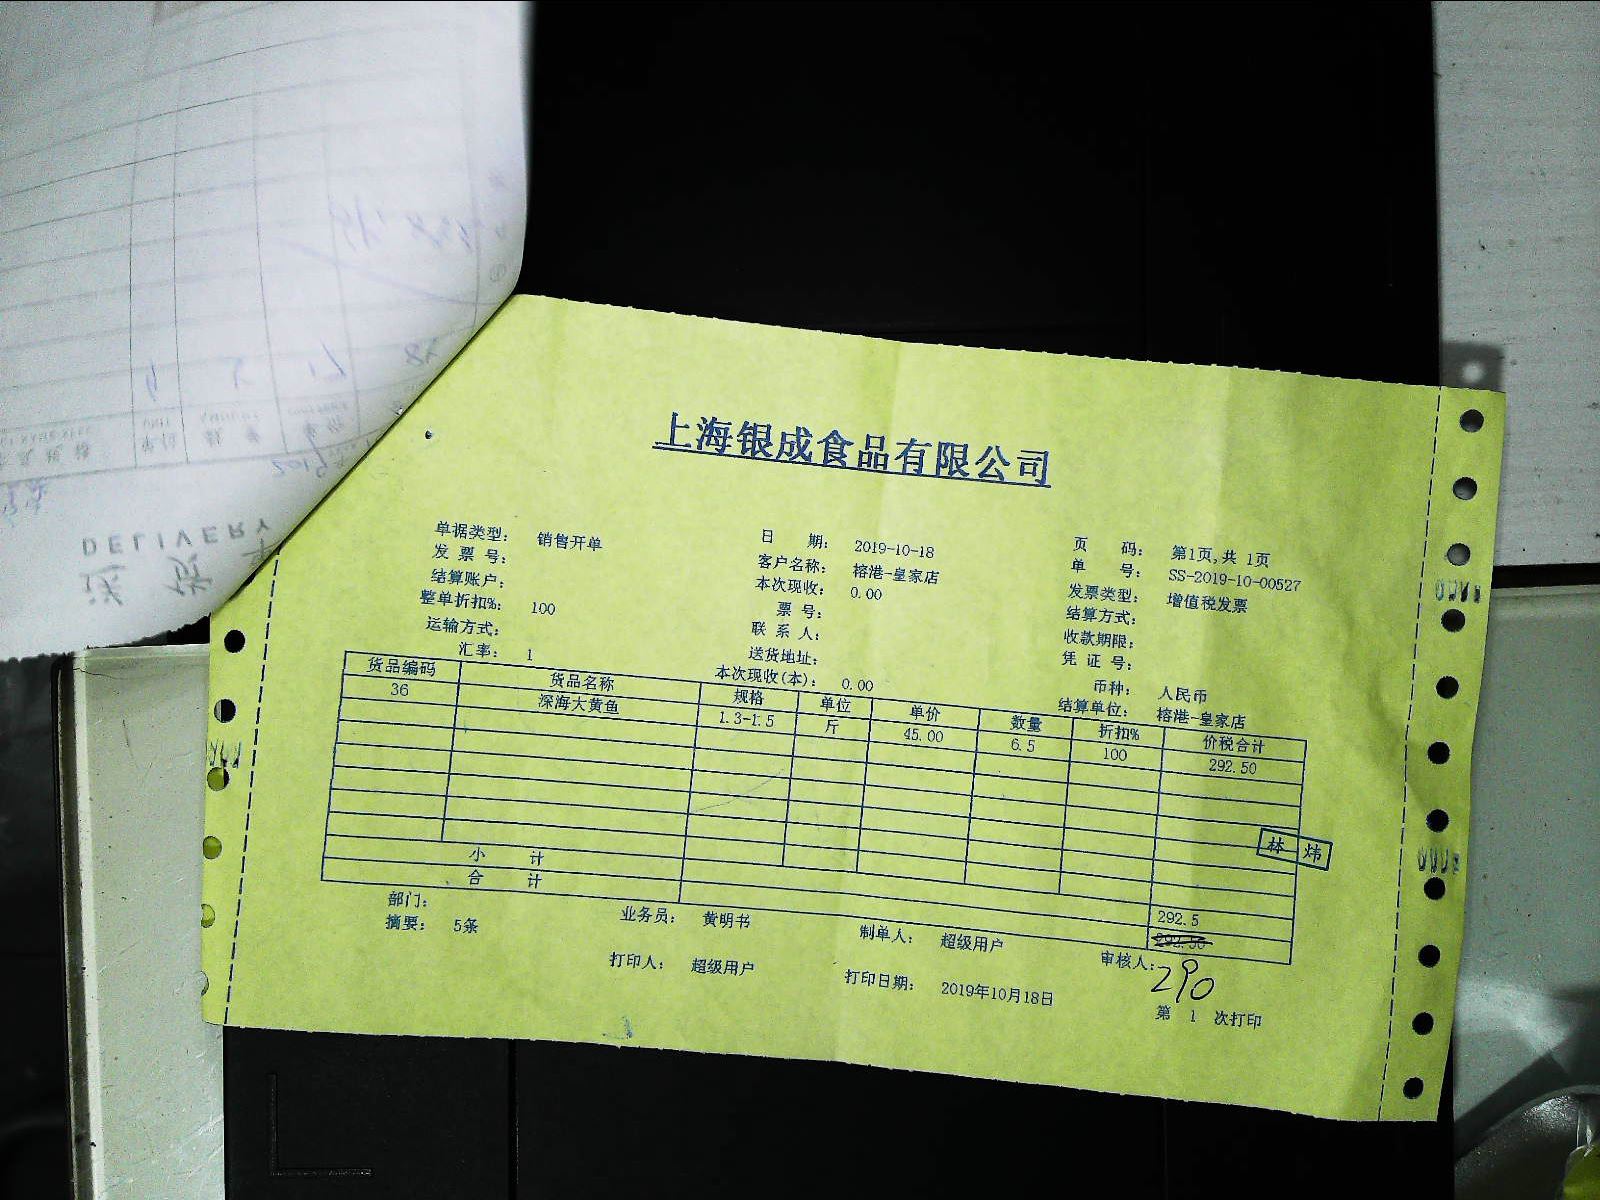 上海银成食品有限公司
单据类型： 销售开单 日 期： 2019-10-18 页 码： 第1页,共 1页
发 票 号： 客户名称： 榕港-皇家店 单 号： SS-2019-10-00527
结算账户： 本次现收： 0.00 发票类型： 增值税发票
整单折扣%： 100 票 号： 结算方式：
运输方式： 联 系 人： 收款期限：
汇率： 1 送货地址： 凭 证 号：
本次现收(本)： 0.00 币种： 人民币
结算单位： 榕港-皇家店
货品编码 货品名称 规格 单位 单价 数量 折扣% 价税合计
36 深海大黄鱼 1.3-1.5 斤 45.00 6.5 100 292.50
林 炜
小 计 292.5
合 计 292.50
部门： 业务员： 黄明书 制单人： 超级用户 审核人：
290
摘要： 5条
打印人： 超级用户 打印日期： 2019年10月18日 第 1 次打印
DELIVERY
送 货